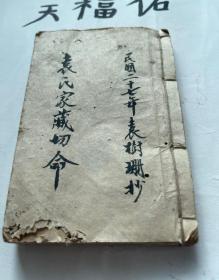 天福佑
民國二十七年袁樹珊抄
袁氏家藏切命